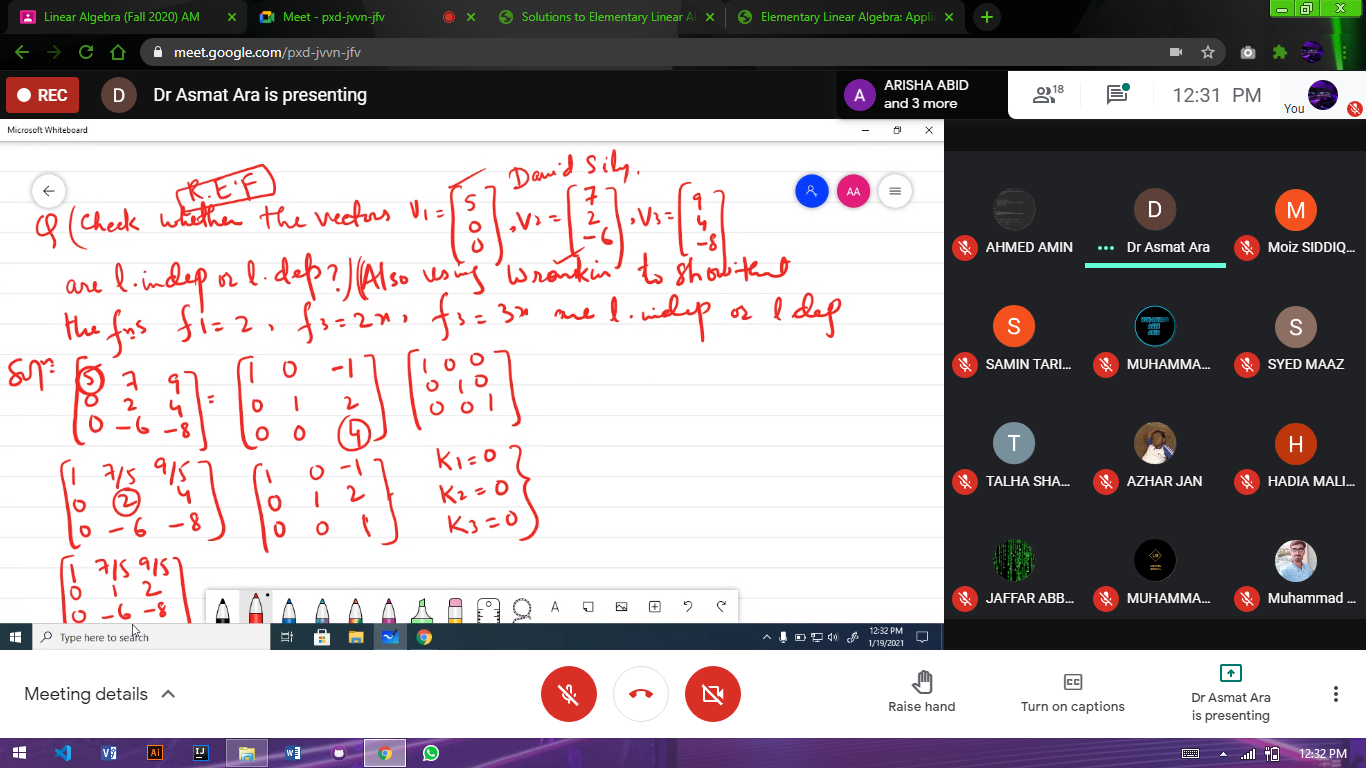 Linear Algebra (Fall 2020) AM
Meet - pxd-jvvn-jfv
Solutions to Elementary Linear Al
Elementary Linear Algebra: Appli
meet.google.com/pxd-jvvn-jfv
REC
D
Dr Asmat Ara is presenting
A
ARISHA ABID
and 3 more
18
12:31 PM
You
Microsoft Whiteboard
R.E.F
AA
Q (Check whether the vectors V1 = [5 0 0], V2 = [7 2 -6], V3 = [9 4 -8]
are l.indep or l.dep?) (Also using wronkin to show that
the fns f1 = 2, f3 = 2x, f3 = 3x are l.indep or l dep
[5 7 9] = [1 0 -1] [1 0 0]
[0 2 4] [0 1 2] [0 1 0]
[0 -6 -8] [0 0 4] [0 0 1]
[1 7/5 9/5] [1 0 -1] K1 = 0
[0 2 4] [0 1 2] K2 = 0
[0 -6 -8] [0 0 1] K3 = 0
[1 7/5 9/5]
[0 1 2]
[0 -6 -8]
Type here to search
12:32 PM
1/19/2021
AHMED AMIN
D
Dr Asmat Ara
M
Moiz SIDDIQ...
S
SAMIN TARI...
MUHAMMA...
S
SYED MAAZ
T
TALHA SHA...
AZHAR JAN
H
HADIA MALI...
JAFFAR ABB...
MUHAMMA...
Muhammad ...
Meeting details
Raise hand
Turn on captions
Dr Asmat Ara
is presenting
12:32 PM